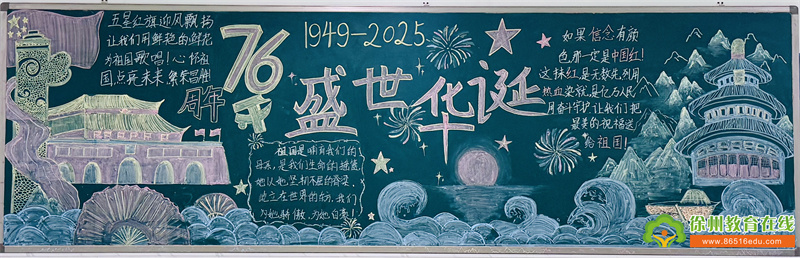 五星红旗迎风飘扬
让我们用鲜艳的鲜花
为祖国歌唱！心怀祖
国点亮未来 繁荣昌盛
76
周年
1949-2025
盛世华诞
祖国是哺育我们的
母亲，是我们生命的
她以她坚韧不屈的脊梁，
屹立在世界的东方，我们
为她骄傲，为她自豪！
如果信念有颜
色那一定是中国红！
这抹红是无数先烈用
热血染就，是亿万人民
用奋斗守护让我们把
最美的祝福送
给祖国！
徐州教育在线
www.86516edu.com